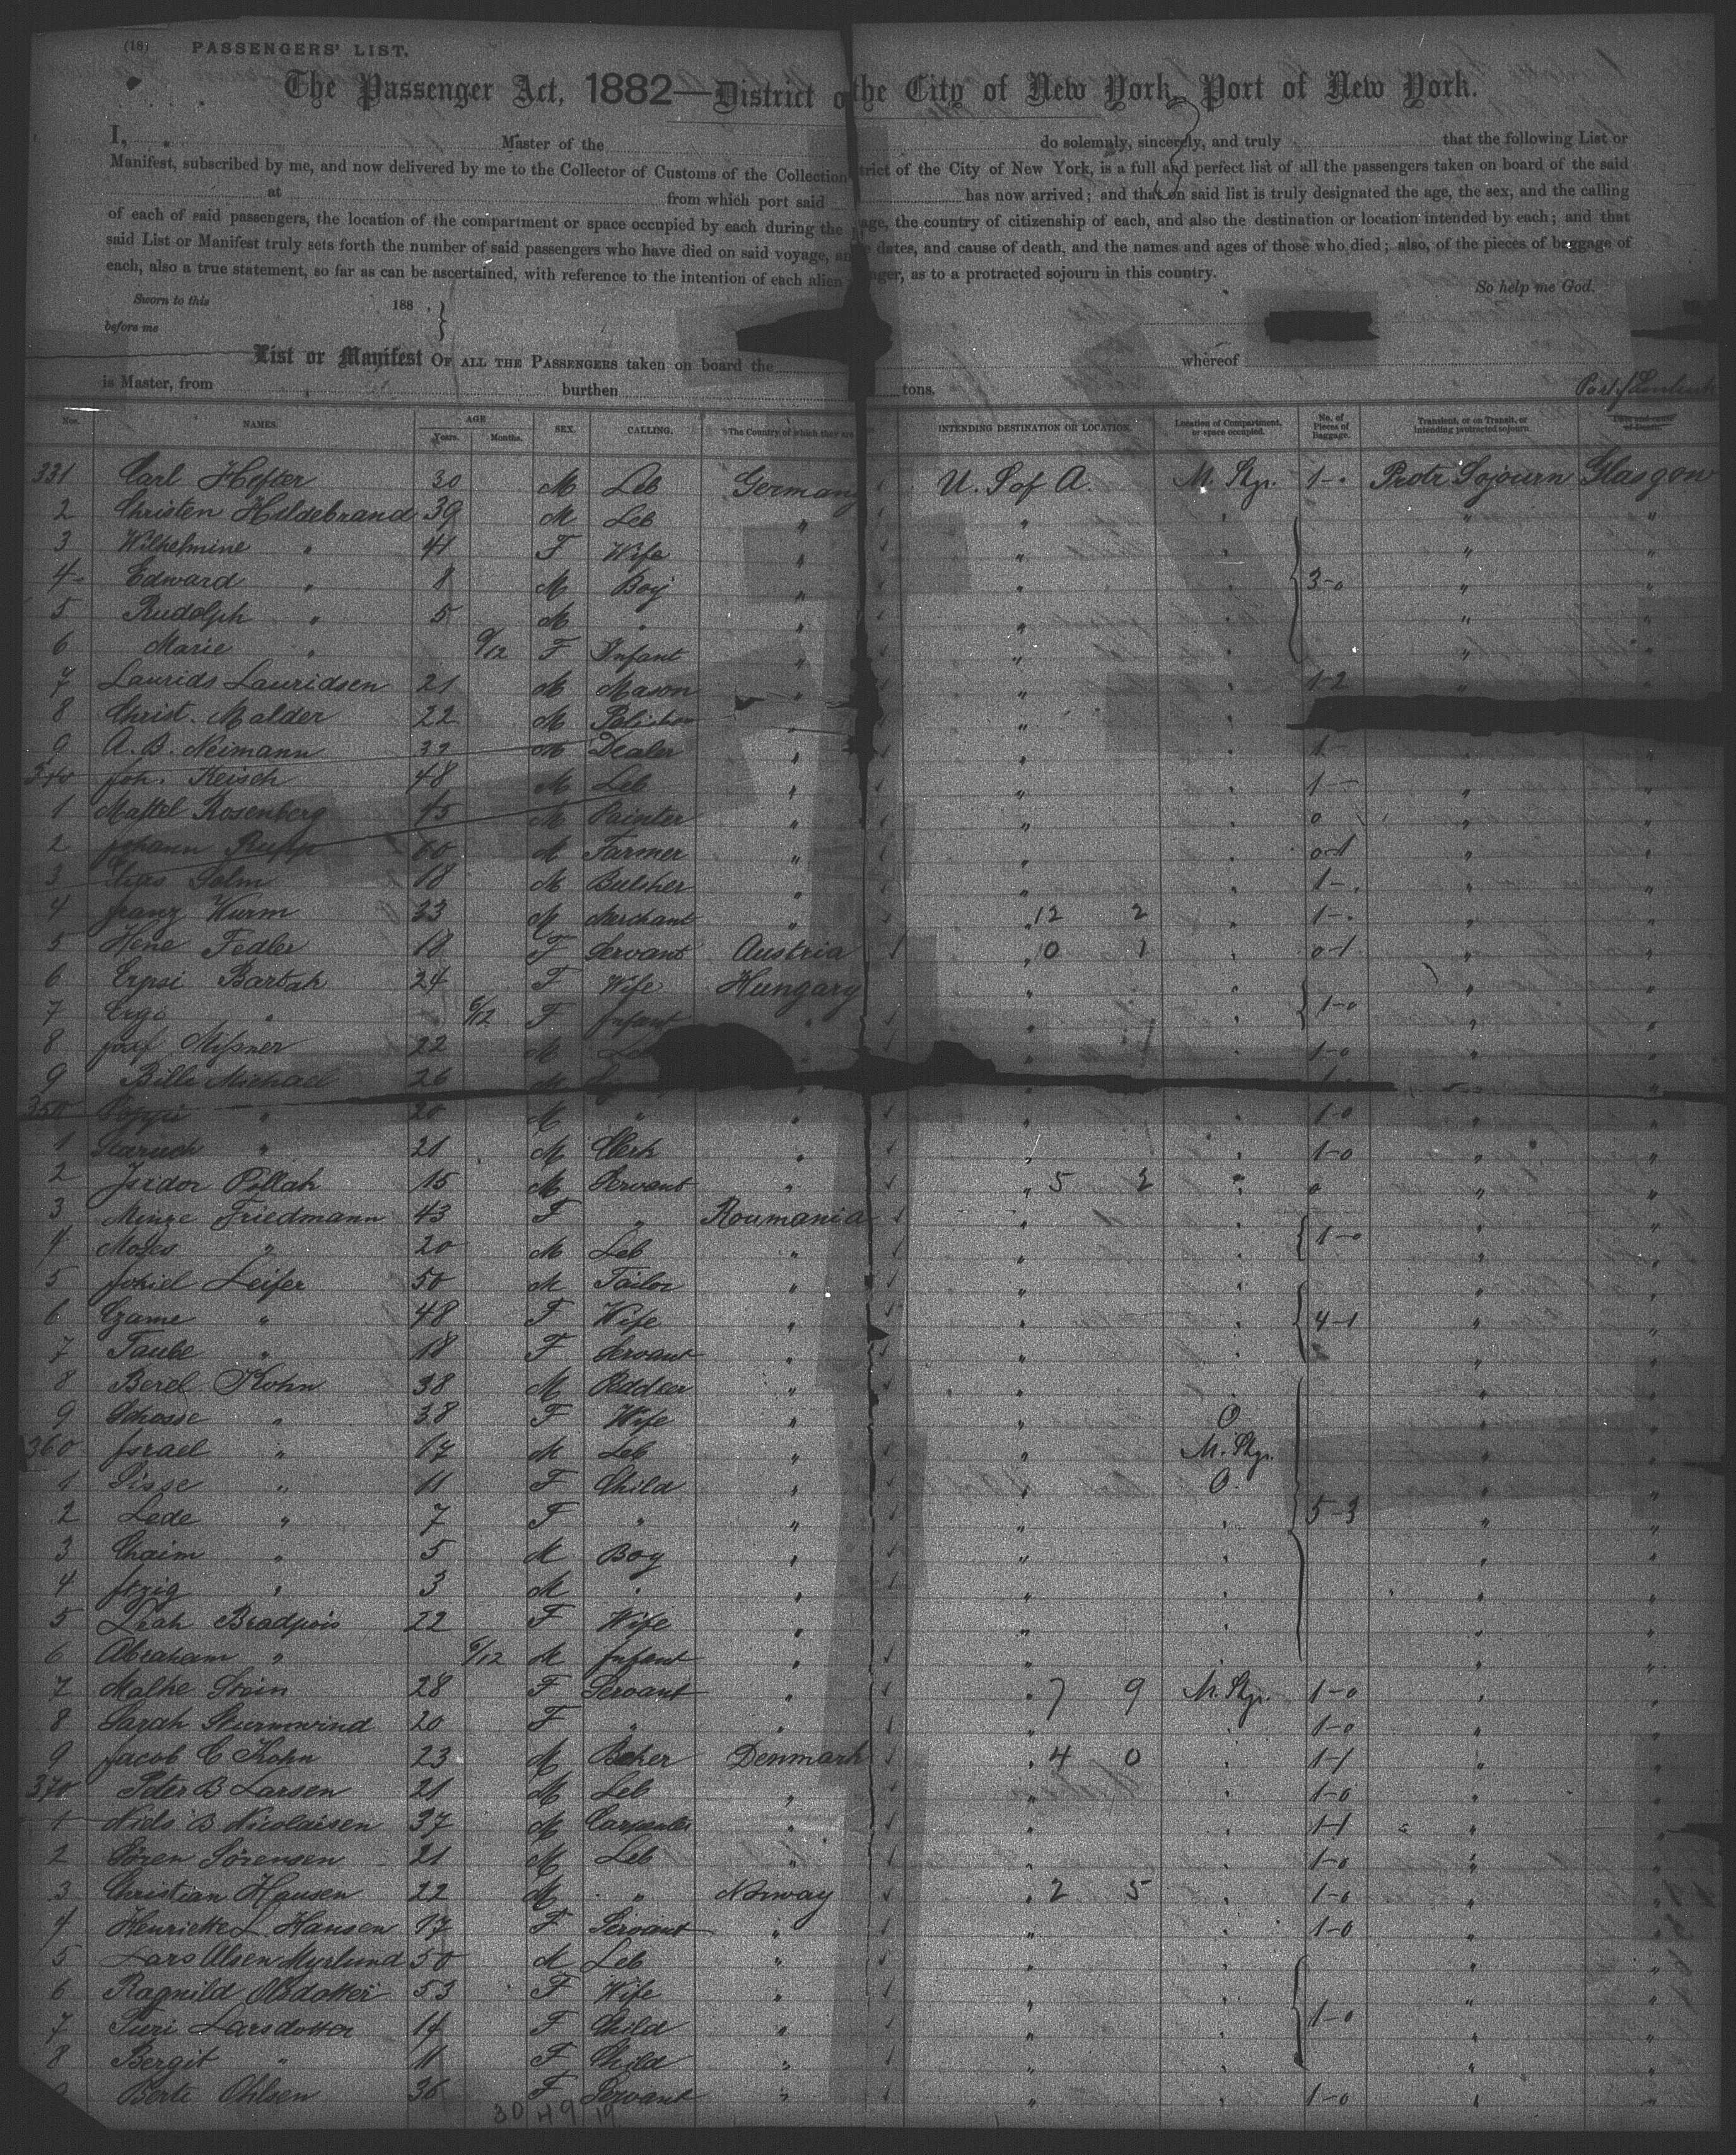 (18) PASSENGERS' LIST.
The Passenger Act, 1882—District o the City of New York, Port of New York.
I, Master of the do solemnly, sincerely, and truly that the following List or
Manifest, subscribed by me, and now delivered by me to the Collector of Customs of the Collection trict of the City of New York, is a full and perfect list of all the passengers taken on board of the said
at from which port said has now arrived; and that on said list is truly designated the age, the sex, and the calling
of each of said passengers, the location of the compartment or space occupied by each during the age, the country of citizenship of each, and also the destination or location intended by each; and that
said List or Manifest truly sets forth the number of said passengers who have died on said voyage, an dates, and cause of death, and the names and ages of those who died; also, of the pieces of baggage of
each, also a true statement, so far as can be ascertained, with reference to the intention of each alien nger, as to a protracted sojourn in this country.
So help me God.
Sworn to this 188 , }
before me
List or Manifest OF ALL THE PASSENGERS taken on board the whereof
is Master, from burthen tons. Port
Nos. NAMES. AGE Years. Months. SEX. CALLING. The Country of which they are INTENDING DESTINATION OR LOCATION. Location of Compartment, or space occupied. No. of Pieces of Baggage. Transient, or on Transit, or intending protracted sojourn.
331 Carl Hefter 30 M Leb Germany U. S of A. M. Stg. 1-. Protr Sojourn Glasgow
2 Christen Hildebrand 39 M Leb " " " "
3 Wilhelmine " 41 F Wife " " " "
4 Edward " 8 M Boy " " 3-0 " "
5 Rudolph " 5 M " " " " "
6 Marie " 9/12 F Infant " " " "
7 Laurids Lauridsen 21 M Mason " " 1-2 "
8 Christ. Malder 22 M " "
9 A. B. Neimann 32 M Dealer " " 1-
340 Joh. Keisch 48 M Leb " " 1- " "
1 Mattel Rosenberg 45 M Painter " " 0 " "
2 Johann Rupp 60 M Farmer " " 0-1 " "
3 Salm 18 M Butsher " " 1-. " "
4 Franz Wurm 33 M Merchant " 12 2 " 1-. " "
5 Hene Fedler 18 F Servant Austria " 0 1 " 0-1 " "
6 Erpsi Bartah 24 F Wife Hungary " " " "
7 " 6/12 F Infant " " " 1-0 " "
8 Josef Missner 22 M " " 1-0 " "
9 Billi Michael 26 M " "
350 " 20 M " " " " 1-0 " "
1 " 21 M Clerk " " " 1-0 " "
2 Isidor Pollak 15 M Servant " " 5 2 " 0 " "
3 Minze Friedmann 43 F " Roumania " " " "
4 Moses " 20 M Leb " " " 1-0 " "
5 Leifer 50 M Tailor " " " " "
6 " 48 F Wife " " " 4-1 " "
7 Taube " 18 F Servant " " " " "
8 Berel Kohn 38 M Peddler " " " " "
9 Schosse " 38 F Wife " " O " "
360 Israel " 17 M Leb " " M. Stg. " "
1 Sisse " 11 F Child " " O " "
2 Lede " 7 F " " " " 5-3 " "
3 Chaim " 5 M Boy " " " " "
4 Itzig " 3 M " " " " " "
5 Leah 22 F Wife " " " " "
6 Abraham " 6/12 M Infant " " " " "
7 Malke Stein 28 F Servant " " 7 9 M. Stg. 1-0 " "
8 Sarah Sturmwind 20 F " " " " 1-0 " "
9 Jacob C Kohn 23 M Baker Denmark " 4 0 " 1-1 " "
370 Peter B Larsen 21 M Leb " " " 1-0 " "
1 Niels B Nicolaisen 37 M Carpenter " " " 1-1 " "
2 Sören Sörensen 21 M Leb " " " 1-0 " "
3 Christian Hansen 22 M " Norway " 2 5 " 1-0 " "
4 Henriette L. Hansen 17 F Servant " " " 1-0 " "
5 Lars Olsen Myrlund 50 M Leb " " " " "
6 Ragnild Olsdotter 53 F Wife " " " " "
7 Turi Larsdotter 14 F Child " " " 1-0 " "
8 Bergit " 11 F Child " " " " "
9 Berte Ohlsen 36 F Servant " " " 1-0 " "
30 49 19